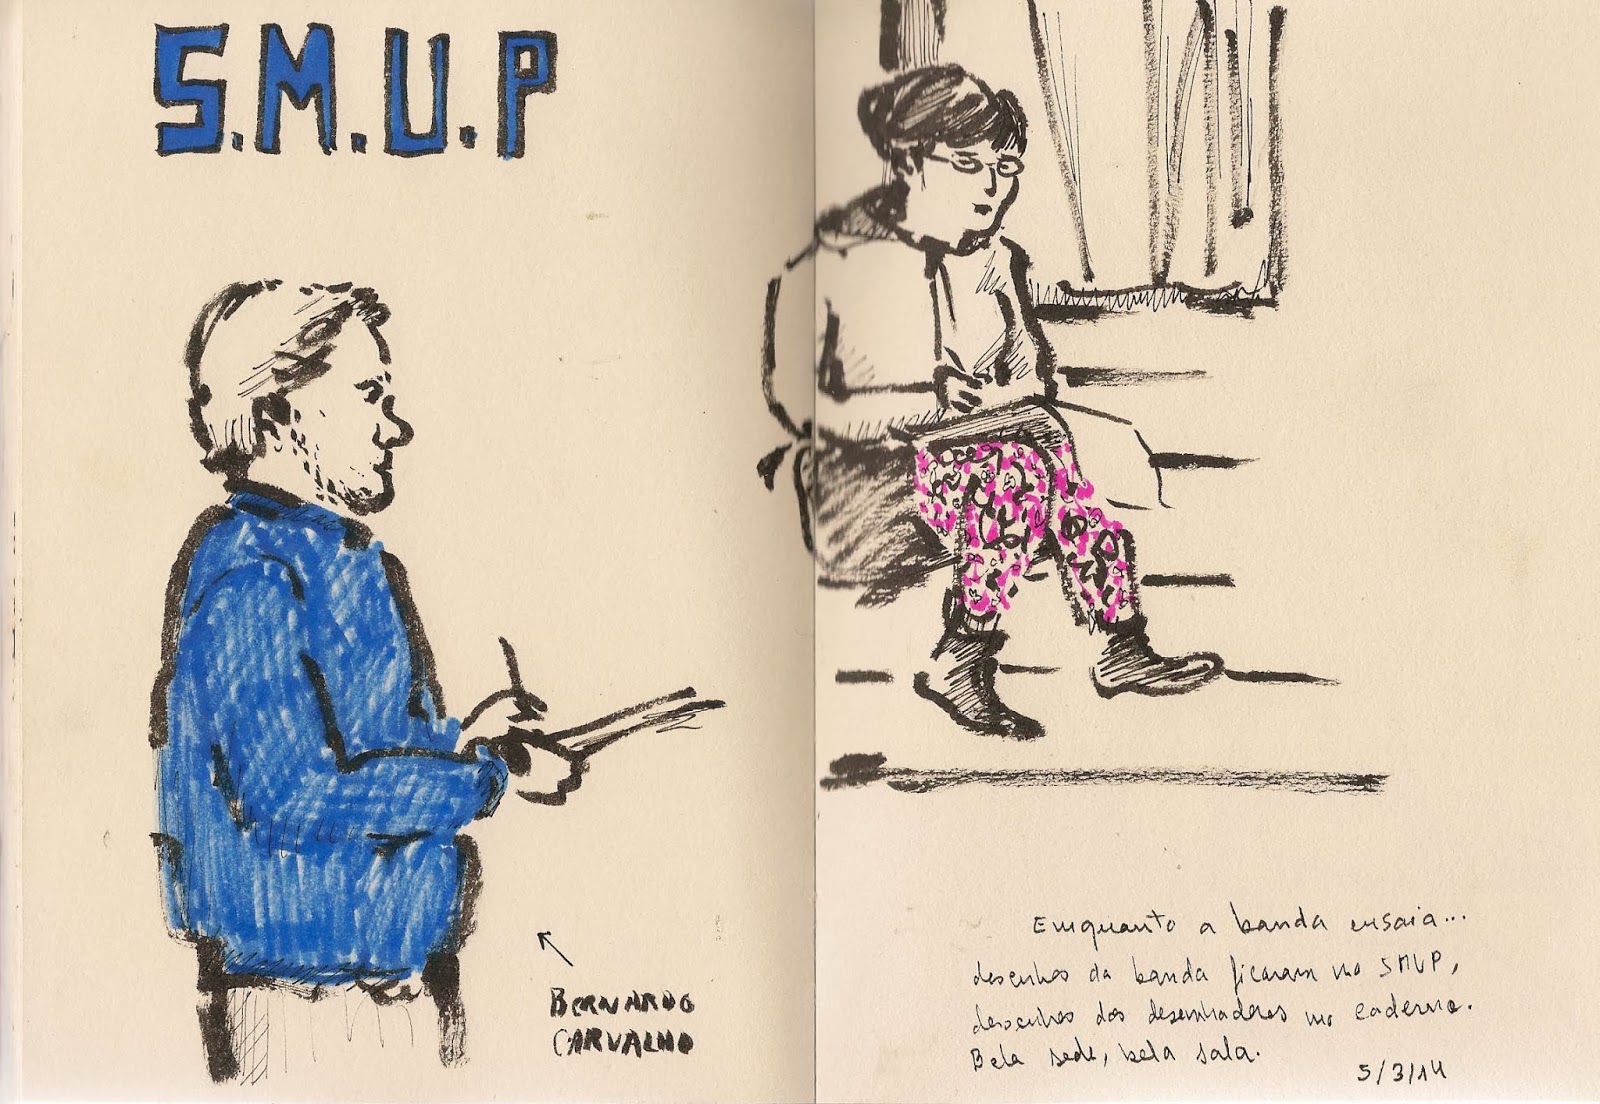 S.M.U.P
BERNARDO
CARVALHO
Enquanto a banda ensaia...
desenhos da banda ficaram no SMUP,
desenhos dos desenhadores no caderno.
Bela sede, bela sala.
5/3/14